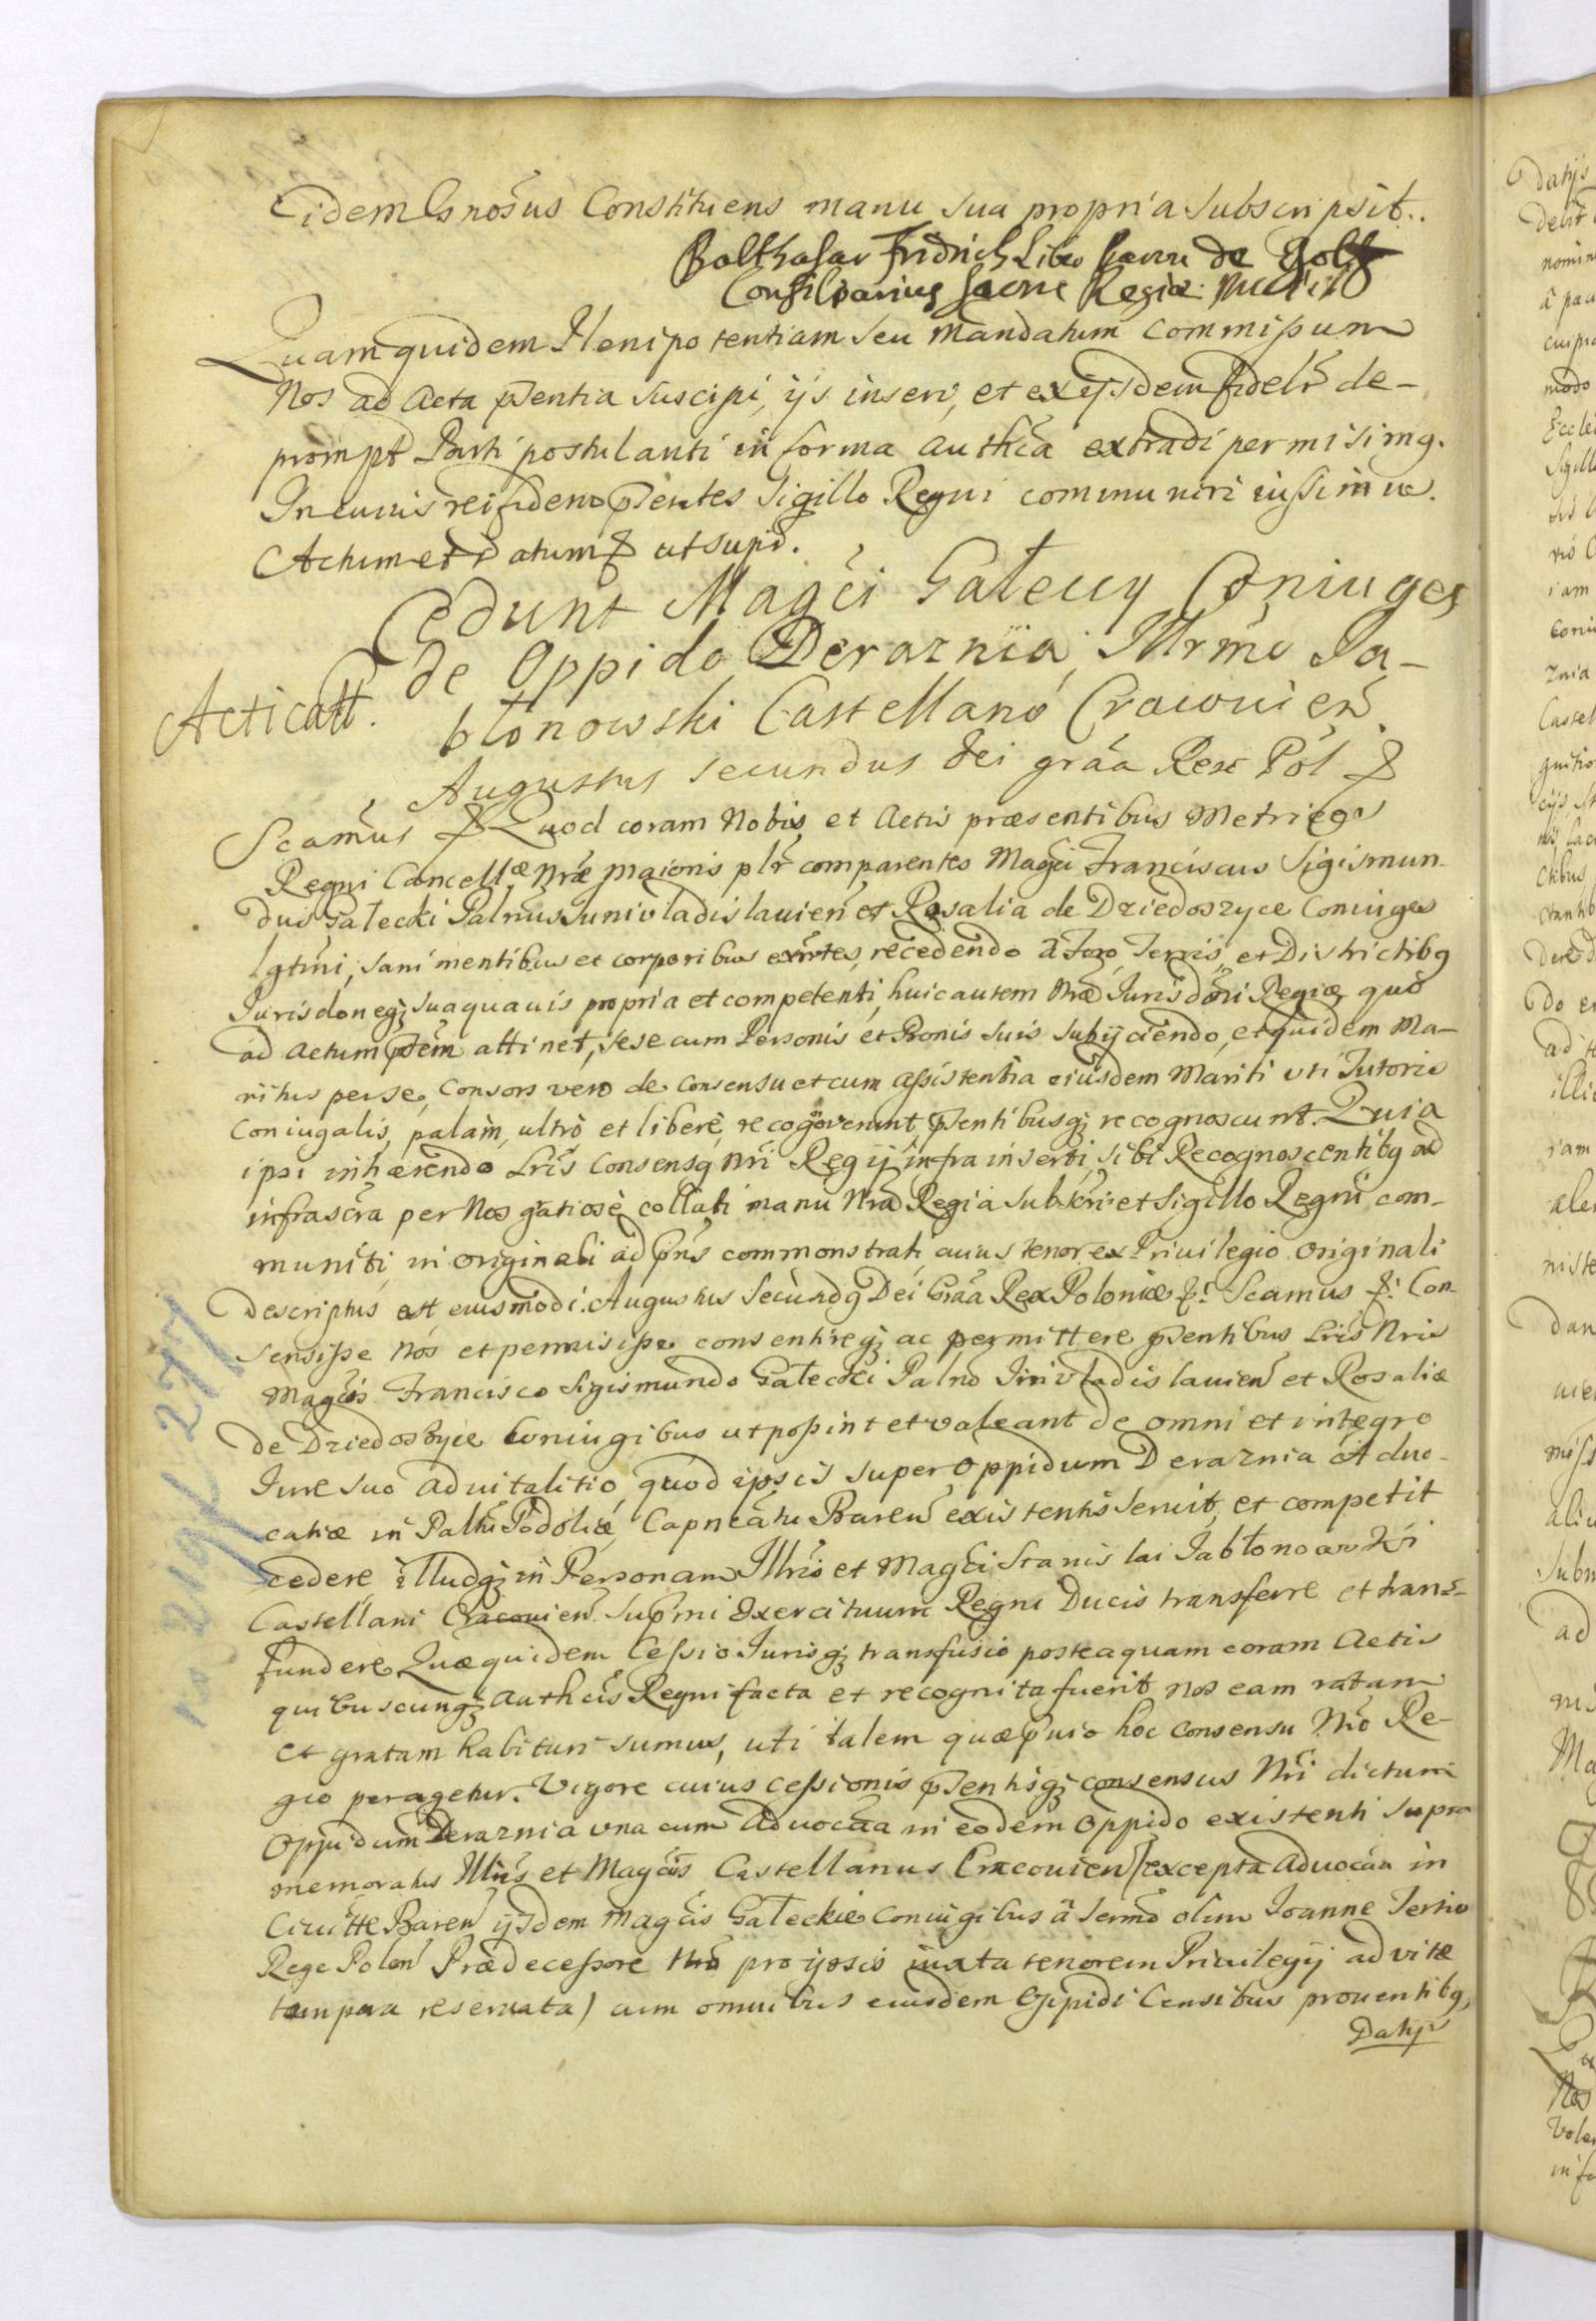 Eidem Gnosus Constituens manu sua propria subscripsit..
Balthasar Fridrich Liber Baro de Goltz
Consiliarius Sacrae Regiae
Quamquidem Plenipotentiam seu mandatum commissum
Nos ad Acta pñtentia suscipi, ijs inseri, et ex ijsdem fidelr de-
prompt Parti postulanti in forma authca extradi permisimq.
In cuius rei fidem pñtes Sigillo Regni communiri iussimus.
Actum et Datum ut supra.
Cedunt Magci Gałeccy Coniuges
de Oppido Deraznia Illrmo Ja-
błonowski Castellano Cracovien
Acticatt.
Augustus secundus Dei graa Rex Pol
Scamus Quod coram Nobis et Actis praesentibus Metrices
Regni Cancellæ Nræ Maioris plr comparentes Magci Franciscus Sigismun-
dus Gałecki Palnus Iunivladislavien et Rosalia de Dziedoszyce Coniuges
lgtmi, sani mentibus et corporibus exntes, recedendo a Foro Terris, et Districtibq
Jurisdonegj sua quavis propria et competenti, huic autem Nræ Jurisdoni Regiæ quo
ad actum pñtem attinet, sese cum Personis et Bonis suis subijciendo, et quidem Ma-
ritus per se, Consors vero de Consensu et cum assistentia eiusdem Mariti uti Tutoris
Coniugalis, palam, ultrò et liberè, recognoverunt pñtentibusqj recognoscunt. Quia
ipsi inhærendo Lris Consensq Nri Regij infra inserti, sibi Recognoscentibq ad
infrascra per Nos gratiosè collati manu Nra Regia subscri et Sigillo Regni com-
muniti in originali ad pñs commonstrati cuius tenor ex Privilegio Originali
descriptus est eiusmodi. Augustus Secundq Dei Graa Rex Poloniæ &c. Scamus &c. Con-
sensisse Nos et permisisse consentireqj ac permittere pñtentibus Lris Nris
Magcis Francisco Sigismundo Gałecki Palno Iunivladislavien et Rosaliæ
de Dziedoszyce Coniugibus ut possint et valeant de omni et integro
Jure suo advitalitio, quod ipsis super Oppidum Deraznia Advo-
catiæ in Paltu Podoliæ, Capneatu Baren existentis servit, et competit
cedere illudqj in Personam Illris et Magci Stanislai Jabłonowski
Castellani Cracovien Supmi Exercituum Regni Ducis transferre et trans-
fundere Quæquidem Cessio Jurisqj transfusio posteaquam coram Actis
quibuscunqj Authcis Regni facta et recognita fuerit nos eam ratam
et gratam habituri sumus, uti talem quæ prævio hoc Consensu Nro Re-
gio peragetur. Vigore cuius cessionis pñtentisqj consensus Nri dictum
Oppidum Deraznia una cum Advocaa in eodem Oppido existenti supra
memoratus Illris et Magcus Castellanus Cracovien (excepta Advocaa in
Civitte Baren ijsdem Magcis Gałeckie Coniugibus à Sermo olim Joanne Tertio
Rege Polon Prædecessore Nro pro ipsis iuxta tenorem Privilegij ad vitæ
tempora reservata) cum omnibus eiusdem Oppidi Censibus proventibq,
Datijs